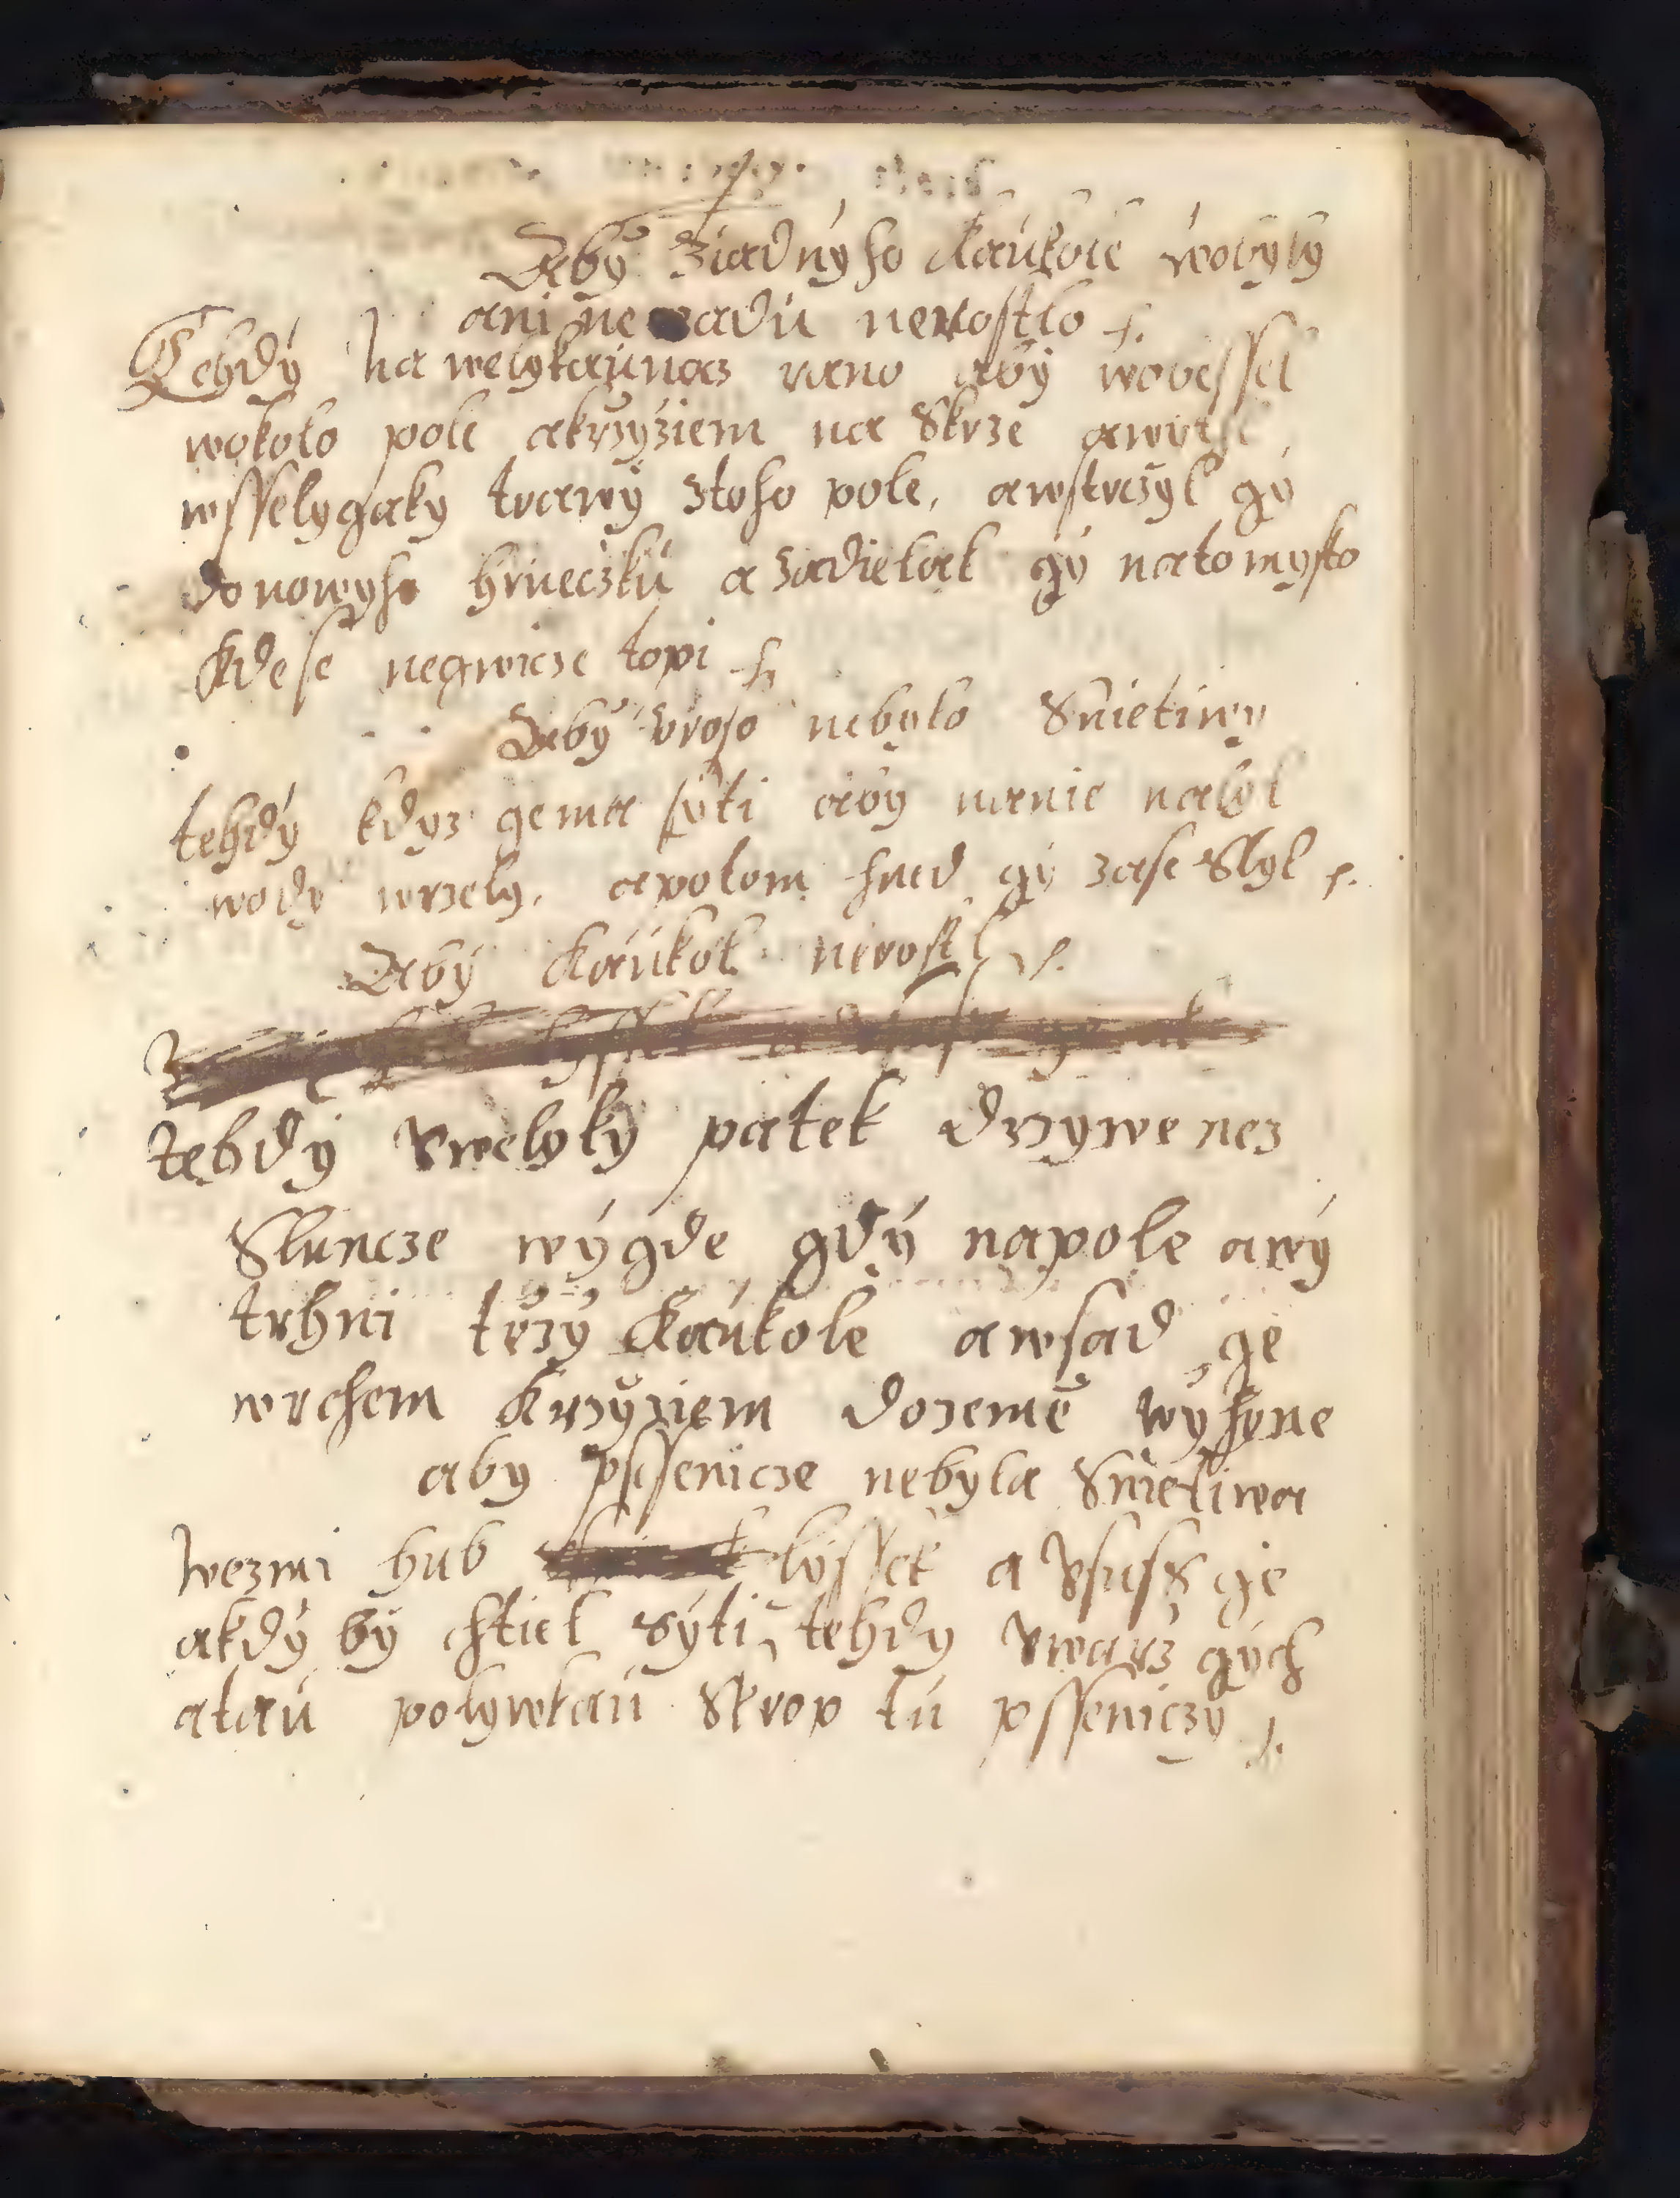 Aby ziadnyho kaukole wobyly
ani neřadu nerostlo
Tehdy na welykaunocz rano aby wobessel
wokolo pole akrzyziem na Skrze
wsselygaky trawy ztoho pole, awstrczyl gy
donowyho hrneczku a zadielal gy natomysto
kdese negwicze topi
Aby proso nebylo Snietiwy
tehdy kdyz gema syti aby nanie nalyl
wody wrzely, apotom hned gy zase Slyl
Aby kaukol nerostl
tehdy vweliky patek drzywe nez
Sluncze wygde gdy napole awy
trhni trzy kaukole awsad ge
wrchem krzyziem dozeme wyhyne
aby pssenicze nebyla Snietiwa
wezmi hub lyssek a vsuss ge
akdy by chtiel syti, tehdy vwarz gych
atau polywkau Skrop tu psseniczy